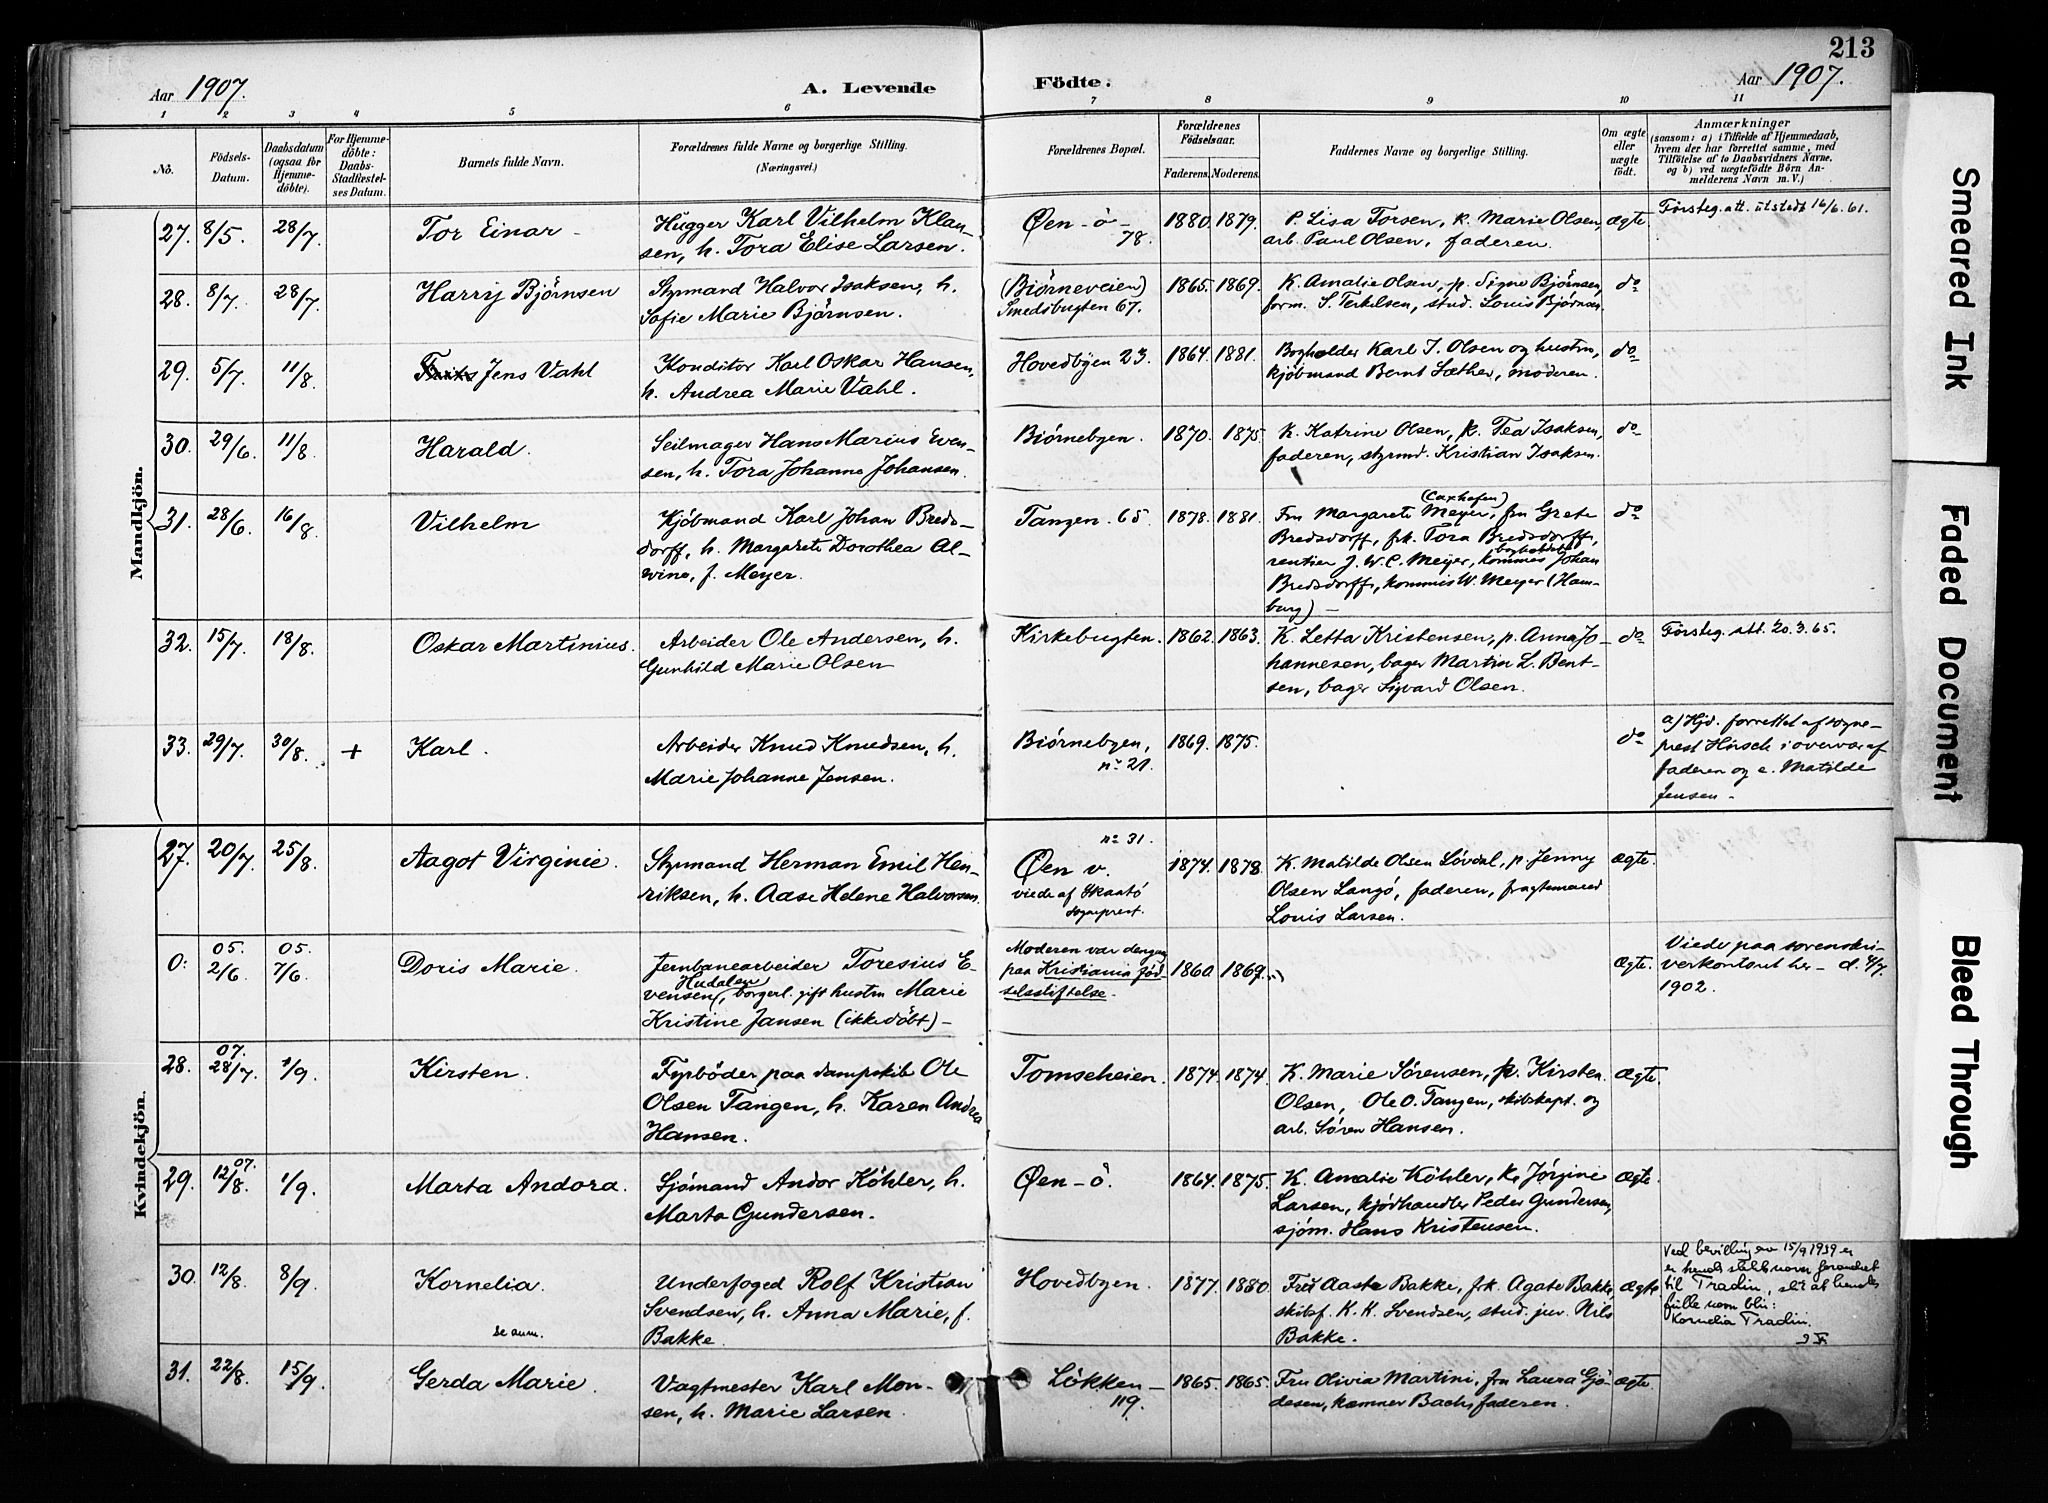 213
Aar 1907. A. Levende Födte. Aar 1907.
1 2 3 4 5 6 7 8 9 10 11
No.
Födsels-
Datum.
Daabsdatum
(ogsaa for
Hjemme-
döbte).
For Hjemme-
döbte:
Daabs-
Stadfæstel-
ses Datum.
Barnets fulde Navn.
Forældrenes fulde Navne og borgerlige Stilling.
(Næringsvei.)
Forældrenes Bopæl.
Forældrenes
Födselsaar.
Faderens. Moderens.
Faddernes Navne og borgerlige Stilling.
Om ægte
eller
uægte
födt.
Anmærkninger
(saasom: a) i Tilfælde af Hjemmedaab,
hvem der har forrettet samme, med
Tilföielse af to Daabsvidners Navne,
og b) ved uægtefödte Börn An-
melderens Navn m. V.)
Mandkjön.
27. 8/5. 28/7. Tor Einar -
Hugger Karl Vilhelm Klau-
sen, h. Tora Elise Larsen.
Øen - ö -
78.
1880. 1879.
P. Lisa Torsen, k. Marie Olsen,
arb. Paul Olsen, faderen.
ægte
Førsteg. att. utstedt 16/6. 61.
28. 8/7. 28/7. Harry Bjørnsen
Styrmand Halvor Isaksen, h.
Sofie Marie Bjørnsen.
(Biørneveien)
Smedsbugten 67.
1865. 1869.
K. Amalie Olsen, p. Signe Bjørnsen,
form. S. Terkelsen, stud. Louis Bjørnsen.
do
29. 5/7. 11/8. Jens Vahl
Konditor Karl Oskar Hansen,
h. Andrea Marie Vahl.
Hovedbyen 23.
1864. 1881.
Bogholder Karl J. Olsen og hustru,
kjøbmand Bernt Sæther, moderen.
do
30. 29/6. 11/8. Harald.
Seilmager Hans Marius Even-
sen, h. Tora Johanne Johansen.
Biørnebyen.
1870. 1875.
K. Katrine Olsen, k. Tea Isaksen,
faderen, styrmd. Kristian Isaksen.
do
31. 28/6. 16/8. Vilhelm
Kjøbmand Karl Johan Breds-
dorff, h. Margarete Dorothea Al-
wine, f. Meyer.
Tangen. 65.
1878. 1881.
(Caxhafen)
Fru Margarete Meyer, fru Grete
Bredsdorff, frk. Tora Bredsdorff,
rentier J. W. C. Meyer, kommis Johan
Bredsdorff, kommis W. Meyer (Ham-
burg) -
do
32. 15/7. 18/8. Oskar Martinius.
Arbeider Ole Andersen, h.
Gunhild Marie Olsen
Kirkebugten.
1862. 1863.
K. Letta Kristensen, p. Anna Jo-
hannesen, bager Martin L. Bent-
sen, bager Sigvard Olsen.
do
Førsteg. att. 20.3.65.
33. 29/7. 30/8. + Karl.
Arbeider Knud Knudsen, h.
Marie Johanne Jensen.
Biørnebyen,
no 21.
1869. 1875.
do
a) Hjd. forrettet af sogne-
prest Hirsch i overvær af
faderen og e. Matilde
Jensen -
Kvindekjön.
27. 20/7. 25/8. Aagot Virginie.
Styrmand Herman Emil Hen-
riksen, h. Aase Helene Halvorsen.
no 31.
Øen v.
viede af Skaatö
sogneprest.
1874. 1878.
K. Matilde Olsen Løvdal, p. Jenny
Olsen Langö, faderen, fragtemand
Louis Larsen.
ægte.
0: 05. 2/6. 05. 7/6. Doris Marie.
Jernbanearbeider Toresius E-
Hudalen
vensen, borgerl. gift hustru Marie
Kristine Jansen (ikkedöbt) -
Moderen var dengang
paa Kristiania fød-
selsstiftelse.
1860. 1869.
ægte.
Viede paa sorenskri-
verkontoret her - d. 4/7.
1902.
28. 07. 28/7. 1/9. Kirsten.
Fyrböder paa dampskib Ole
Olsen Tangen, h. Karen Andrea
Hansen.
Tomseheien.
1874. 1874
K. Marie Sörensen, p. Kirsten
Olsen, Ole O. Tangen, skibskapt. og
arb. Søren Hansen.
Ægte.
29. 07. 12/8. 1/9. Marta Andora.
Sjømand Andor Köhler, h.
Marta Gundersen.
Øen - ö.
1864. 1875.
K. Amalie Köhler, k. Jörgine
Larsen, kjødhandler Peder Gundersen,
sjøm. Hans Kristensen.
Ægte.
30. 12/8. 8/9. Kornelia.
se anm.
Underfoged Rolf Kristian
Svendsen, h. Anna Marie, f.
Bakke.
Hovedbyen.
1877. 1880.
Frk Aasta Bakke, frk. Agate Bakke,
skibsf. K. K. Svendsen, stud. jur. Nils
Bakke.
Ægte
Ved bevilling av 15/9 1939 er
er hends slektsnavn forandret
til Tradin, slik at hendes
fulle navn blir:
Kornelia Tradin.
31. 22/8. 15/9. Gerda Marie.
Vagtmester Karl Mon-
sen, h. Marie Larsen.
Lökken -
119.
1865. 1865.
Fru Olivia Martini, fru Laura Gjö-
desen, kæmner Bach, faderen.
Ægte.
Smeared Ink
Faded Document
Bleed Through